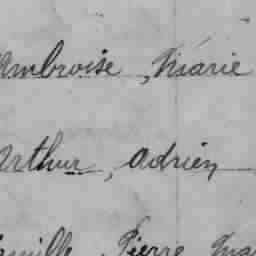 Ambroise, Marie
Arthur, Adrien
Camille, Pierre